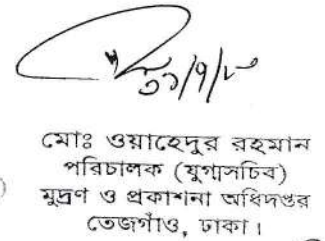 ৩১/৭/৮
মোঃ ওয়াহেদুর রহমান
পরিচালক (যুগ্মসচিব)
মুদ্রণ ও প্রকাশনা অধিদপ্তর
তেজগাঁও, ঢাকা।